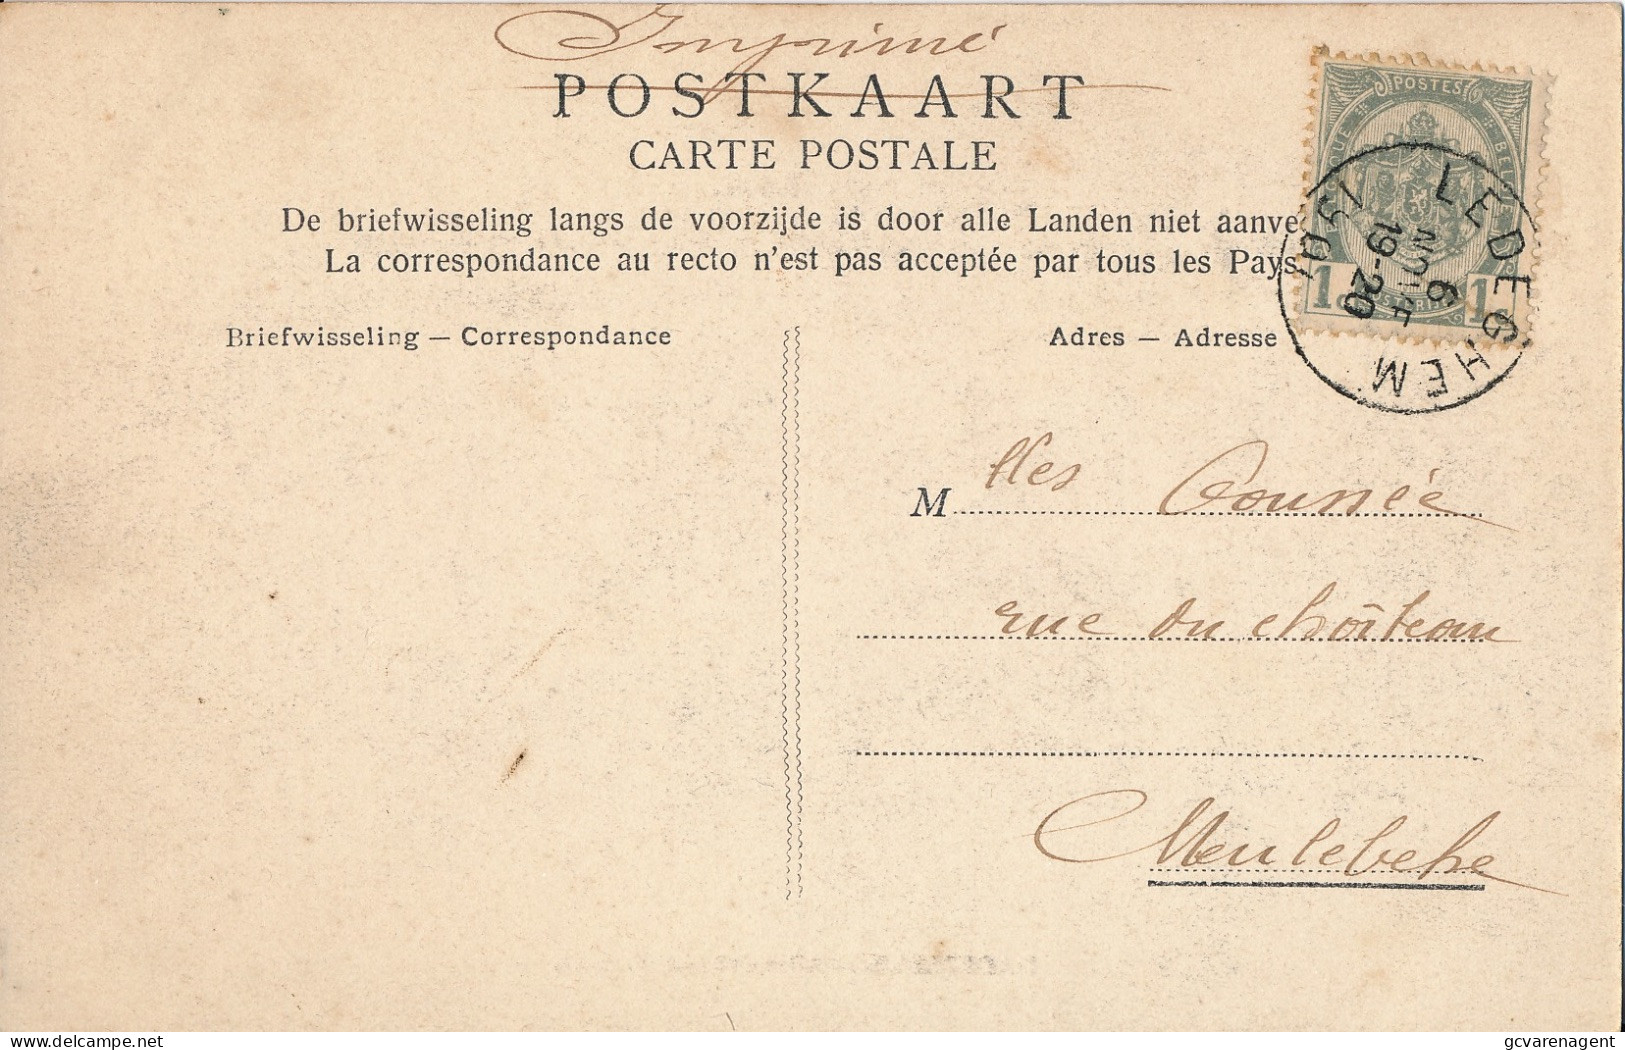 Imprimé
POSTKAART
CARTE POSTALE
De briefwisseling langs de voorzijde is door alle Landen niet aanve
La correspondance au recto n'est pas acceptée par tous les Pays
Briefwisseling — Correspondance
Adres — Adresse
POSTES
1 1
LEDEGHEM
6
19-20
Mlles
rue du château
Meulebeke
delcampe.net
gcvarenagent